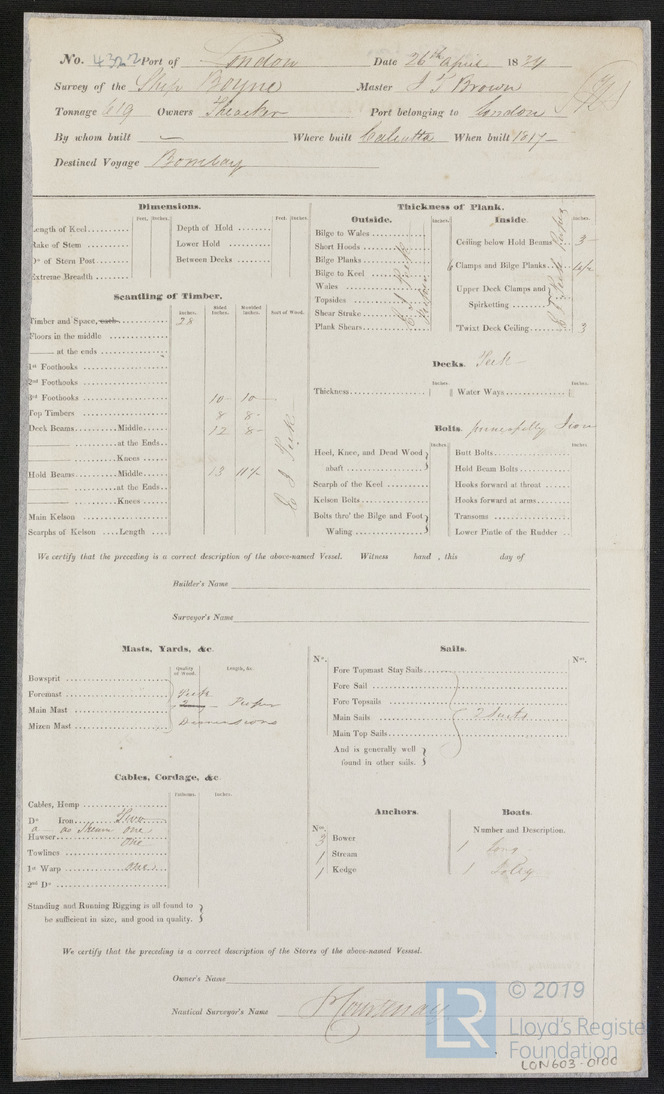 No. 4322 Port of London Date 26th April 1834
Survey of the Ship Boyne Master J T Brown
Tonnage 619 Owners Theaker Port belonging to London
By whom built — Where built Calcutta When built 1817
Destined Voyage Bombay
Dimensions.
Feet. Inches. Feet. Inches.
Length of Keel Depth of Hold
Rake of Stem Lower Hold
Do of Stern Post Between Decks
Extreme Breadth
Scantling of Timber.
Inches. Sided Inches. Moulded Inches. Sort of Wood.
Timber and Space, each 28
Floors in the middle
at the ends
1st Foothooks
2nd Foothooks
3rd Foothooks 10 10
Top Timbers 8 8
Deck Beams Middle 12 8
at the Ends
Knees
Hold Beams Middle 13 11½
at the Ends
Knees
Main Kelson
Scarphs of Kelson Length
E I Teak
Thickness of Plank.
Outside. Inches. Inside. Inches.
Bilge to Wales
Short Hoods
Bilge Planks
Bilge to Keel
Wales
Topsides
Shear Strake
Plank Shears
E I Teak
Ceiling below Hold Beams 3
Clamps and Bilge Planks 4½
Upper Deck Clamps and
Spirketting
'Twixt Deck Ceiling 3
E I Teak
Decks. Teak
Inches Inches
Thickness Water Ways
Bolts. principally Iron
Inches Inches
Heel, Knee, and Dead Wood abaft Butt Bolts
Scarph of the Keel Hold Beam Bolts
Kelson Bolts Hooks forward at throat
Bolts thro' the Bilge and Foot Waling Hooks forward at arms
Transoms
Lower Pintle of the Rudder
We certify that the preceding is a correct description of the above-named Vessel. Witness hand , this day of
Builder's Name
Surveyor's Name
Masts, Yards, &c.
Quality of Wood. Length, &c.
Bowsprit
Foremast
Main Mast
Mizen Mast
Teak
Proper
Dimensions
Sails.
No. Nos.
Fore Topmast Stay Sails
Fore Sail
Fore Topsails
Main Sails
Main Top Sails
2 suits
And is generally well
found in other sails.
Cables, Cordage, &c.
Fathoms. Inches.
Cables, Hemp
Do Iron Two
as Stream one
Hawser One
Towlines
1st Warp one
2nd Do
Standing and Running Rigging is all found to
be sufficient in size, and good in quality.
Anchors.
Nos.
3 Bower
1 Stream
1 Kedge
Boats.
Number and Description.
1 Long
1
We certify that the preceding is a correct description of the Stores of the above-named Vessel.
Owner's Name
Nautical Surveyor's Name Courtenay
LR © 2019
Lloyd's Register
Foundation
LON603-0100